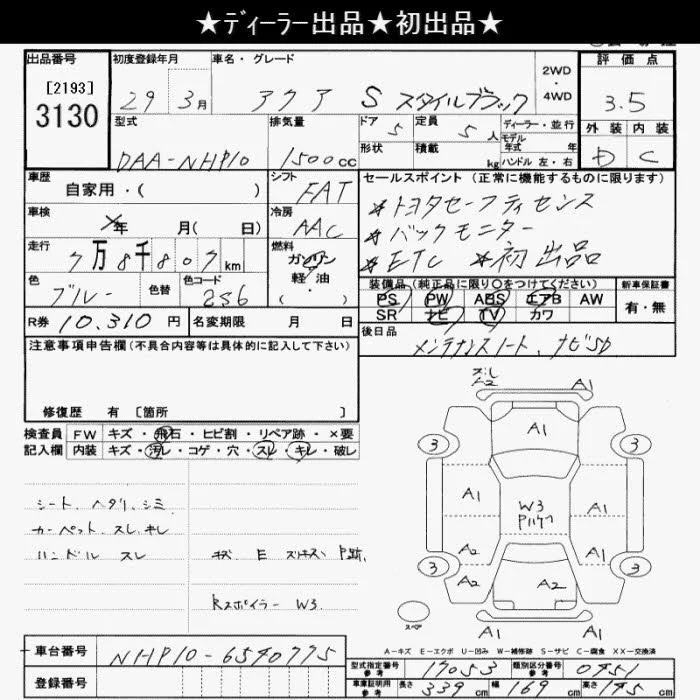 ★ディーラー出品★初出品★
出品番号
[2193]
3130
初度登録年月
29 3月
車名・グレード
アクア S スタイルブラック
2WD
・
4WD
評価点
3.5
外装 内装
D C
型式
DAA-NHP10
排気量
1500cc
ドア 5
形状
定員 5人
積載 kg
ディーラー・並行
モデル年式 年
ハンドル 左・右
車歴
自家用・( )
シフト
FAT
車検
年 月( 日)
冷房
AAC
走行
7万8千807km
燃料
ガソリン
軽・油
( ・ )
色
ブルー
色替
色コード
2S6
R券 10,310円
名変期限 月 日
セールスポイント (正常に機能するものに限ります)
*トヨタセーフティセンス
*バックモニター
*ETC *初出品
装備品 (純正品に限り○をつけてください)
PS PW ABS エアB AW
SR ナビ TV カワ
新車保証書
有・無
後日品
メンテナンスノート、ナビSD
注意事項申告欄(不具合内容等は具体的に記入して下さい)
修復歴 有 [箇所 ]
検査員記入欄
FW キズ・飛石・ヒビ割・リペア跡・×要
内装 キズ・汚レ・コゲ・穴・スレ・キレ・破レ
シート、ヘタリ、シミ
カーペット、スレ、キレ
ハンドル スレ
キズ E スリキズ P跡
Rスポイラー W3
ズレ
A2
A1
A1
3
3
A1
A1
W3
A1
A1
A2
A1
3
3
A2
A2
A1
A1
スペア
A-キズ E-エクボ U-凹み W-補修跡 S-サビ C-腐食 XX-交換済
車台番号
NHP10-6540775
登録番号
型式指定番号
参考
17053
類別区分番号
参考
0451
車庫証明用
参考
長さ 339cm 幅 169cm 高さ 145cm